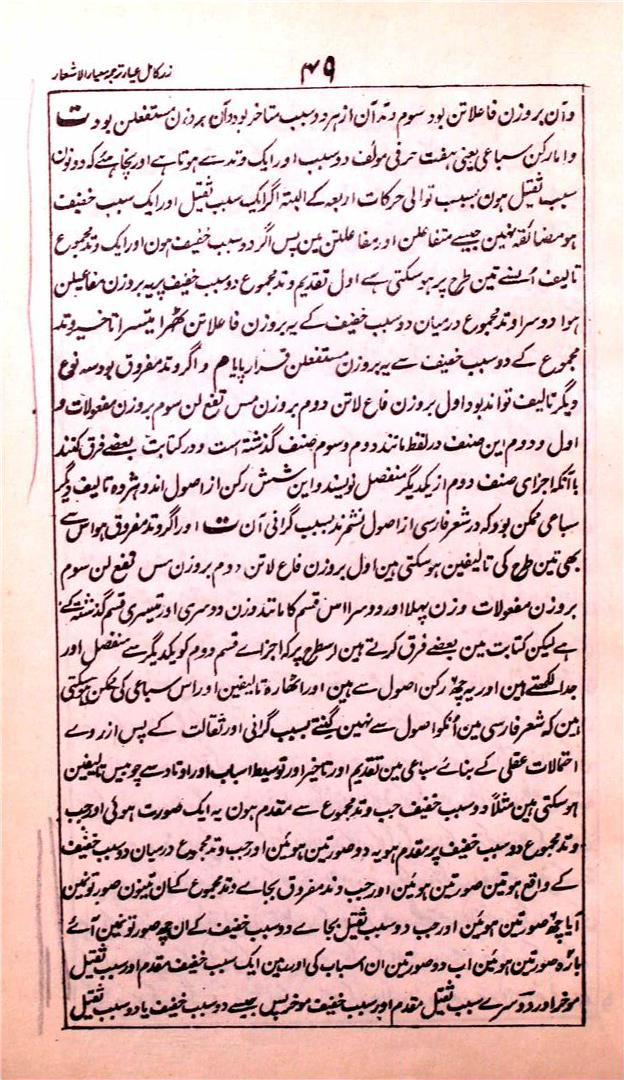 زر کامل عیار ترجمہ معیار الاشعار
۴۹
و آن بر وزن فاعلاتن بود سوم وتد آن از ہر دو سبب متاخر بود و آن بر وزن مستفعلن بود ت
و اما رکن سباعی یعنی ہفت حرفی مولف دو سبب اور ایک وتد سے ہوتا ہے اور چاہئے کہ دونون
سبب ثقیل ہون بسبب توالی حرکات اربعہ کے البتہ اگر ایک سبب ثقیل اور ایک سبب خفیف
ہو مضائقہ نہین جیسے متفاعلن اور مفاعلتن مین پس اگر دو سبب خفیف ہون اور ایک وتد مجموع
تالیف اُنسے تین طرح پر ہو سکتی ہے اول تقدیم وتد مجموع دو سبب خفیف پر یہ بر وزن مفاعیلن
ہوا دوسرا وتد مجموع درمیان دو سبب خفیف کے یہ بر وزن فاعلاتن ٹھہرا تیسرا تاخیر وتد
مجموع کے دو سبب خفیف سے یہ بر وزن مستفعلن قرار پایا م و اگر وتد مفروق بود سہ نوع
دیگر تالیف تواند بود اول بر وزن فاع لاتن دوم بر وزن مس تفع لن سوم بر وزن مفعولات و
اول و دوم این صنف در لفظ مانند دوم و سوم صنف گذشتہ است و در کتابت بعضے فرق کنند
با آنکہ اجزای صنف دوم از یکدیگر منفصل نویسند و این شش رکن از اصول اند و ہژدہ تالیف دیگر
سباعی ممکن بود کہ در شعر فارسی از اصول نشمرند بسبب گرانی آن ت اور اگر وتد مفروق ہو اس سے
بھی تین طرح کی تالیفین ہو سکتی ہین اول بر وزن فاع لاتن دوم بر وزن مس تفع لن سوم
بر وزن مفعولات وزن پہلا اور دوسرا اس قسم کا مانند وزن دوسری اور تیسری قسم گذشتہ کے
ہے لیکن کتابت مین بعضے فرق کرتے ہین اسطرح پر کہ اجزاے قسم دوم کو یکدیگر سے منفصل اور
جدا لکھتے ہین اور یہ چھ رکن اصول سے ہین اور اٹھارہ تالیفین اور اس سباعی کی ممکن ہو سکتی
ہین کہ شعر فارسی مین اُنکو اصول سے نہین گنتے بسبب گرانی اور ثقالت کے پس از روے
احتمالات عقلی کے بنائے سباعی مین تقدیم اور تاخیر اور توسیط اسباب اور اوتاد سے چوبیس تالیفین
ہو سکتی ہین مثلاً دو سبب خفیف جب وتد مجموع سے مقدم ہون یہ ایک صورت ہوئی اور جب
وتد مجموع دو سبب خفیف پر مقدم ہو یہ دو صورتین ہوئین اور جب وتد مجموع درمیان دو سبب خفیف
کے واقع ہو تین صورتین ہوئین اور جب وتد مفروق بجاے وتد مجموع کے ان تینون صورتونین
آیا چھ صورتین ہوئین اور جب دو سبب ثقیل بجاے دو سبب خفیف کے ان چھ صورتونین آئے
بارہ صورتین ہوئین اب دو صورتین ان اسباب کی اور ہین ایک سبب خفیف مقدم اور سبب ثقیل
موخر اور دوسرے سبب ثقیل مقدم اور سبب خفیف موخر پس جیسے دو سبب خفیف یا دو سبب ثقیل